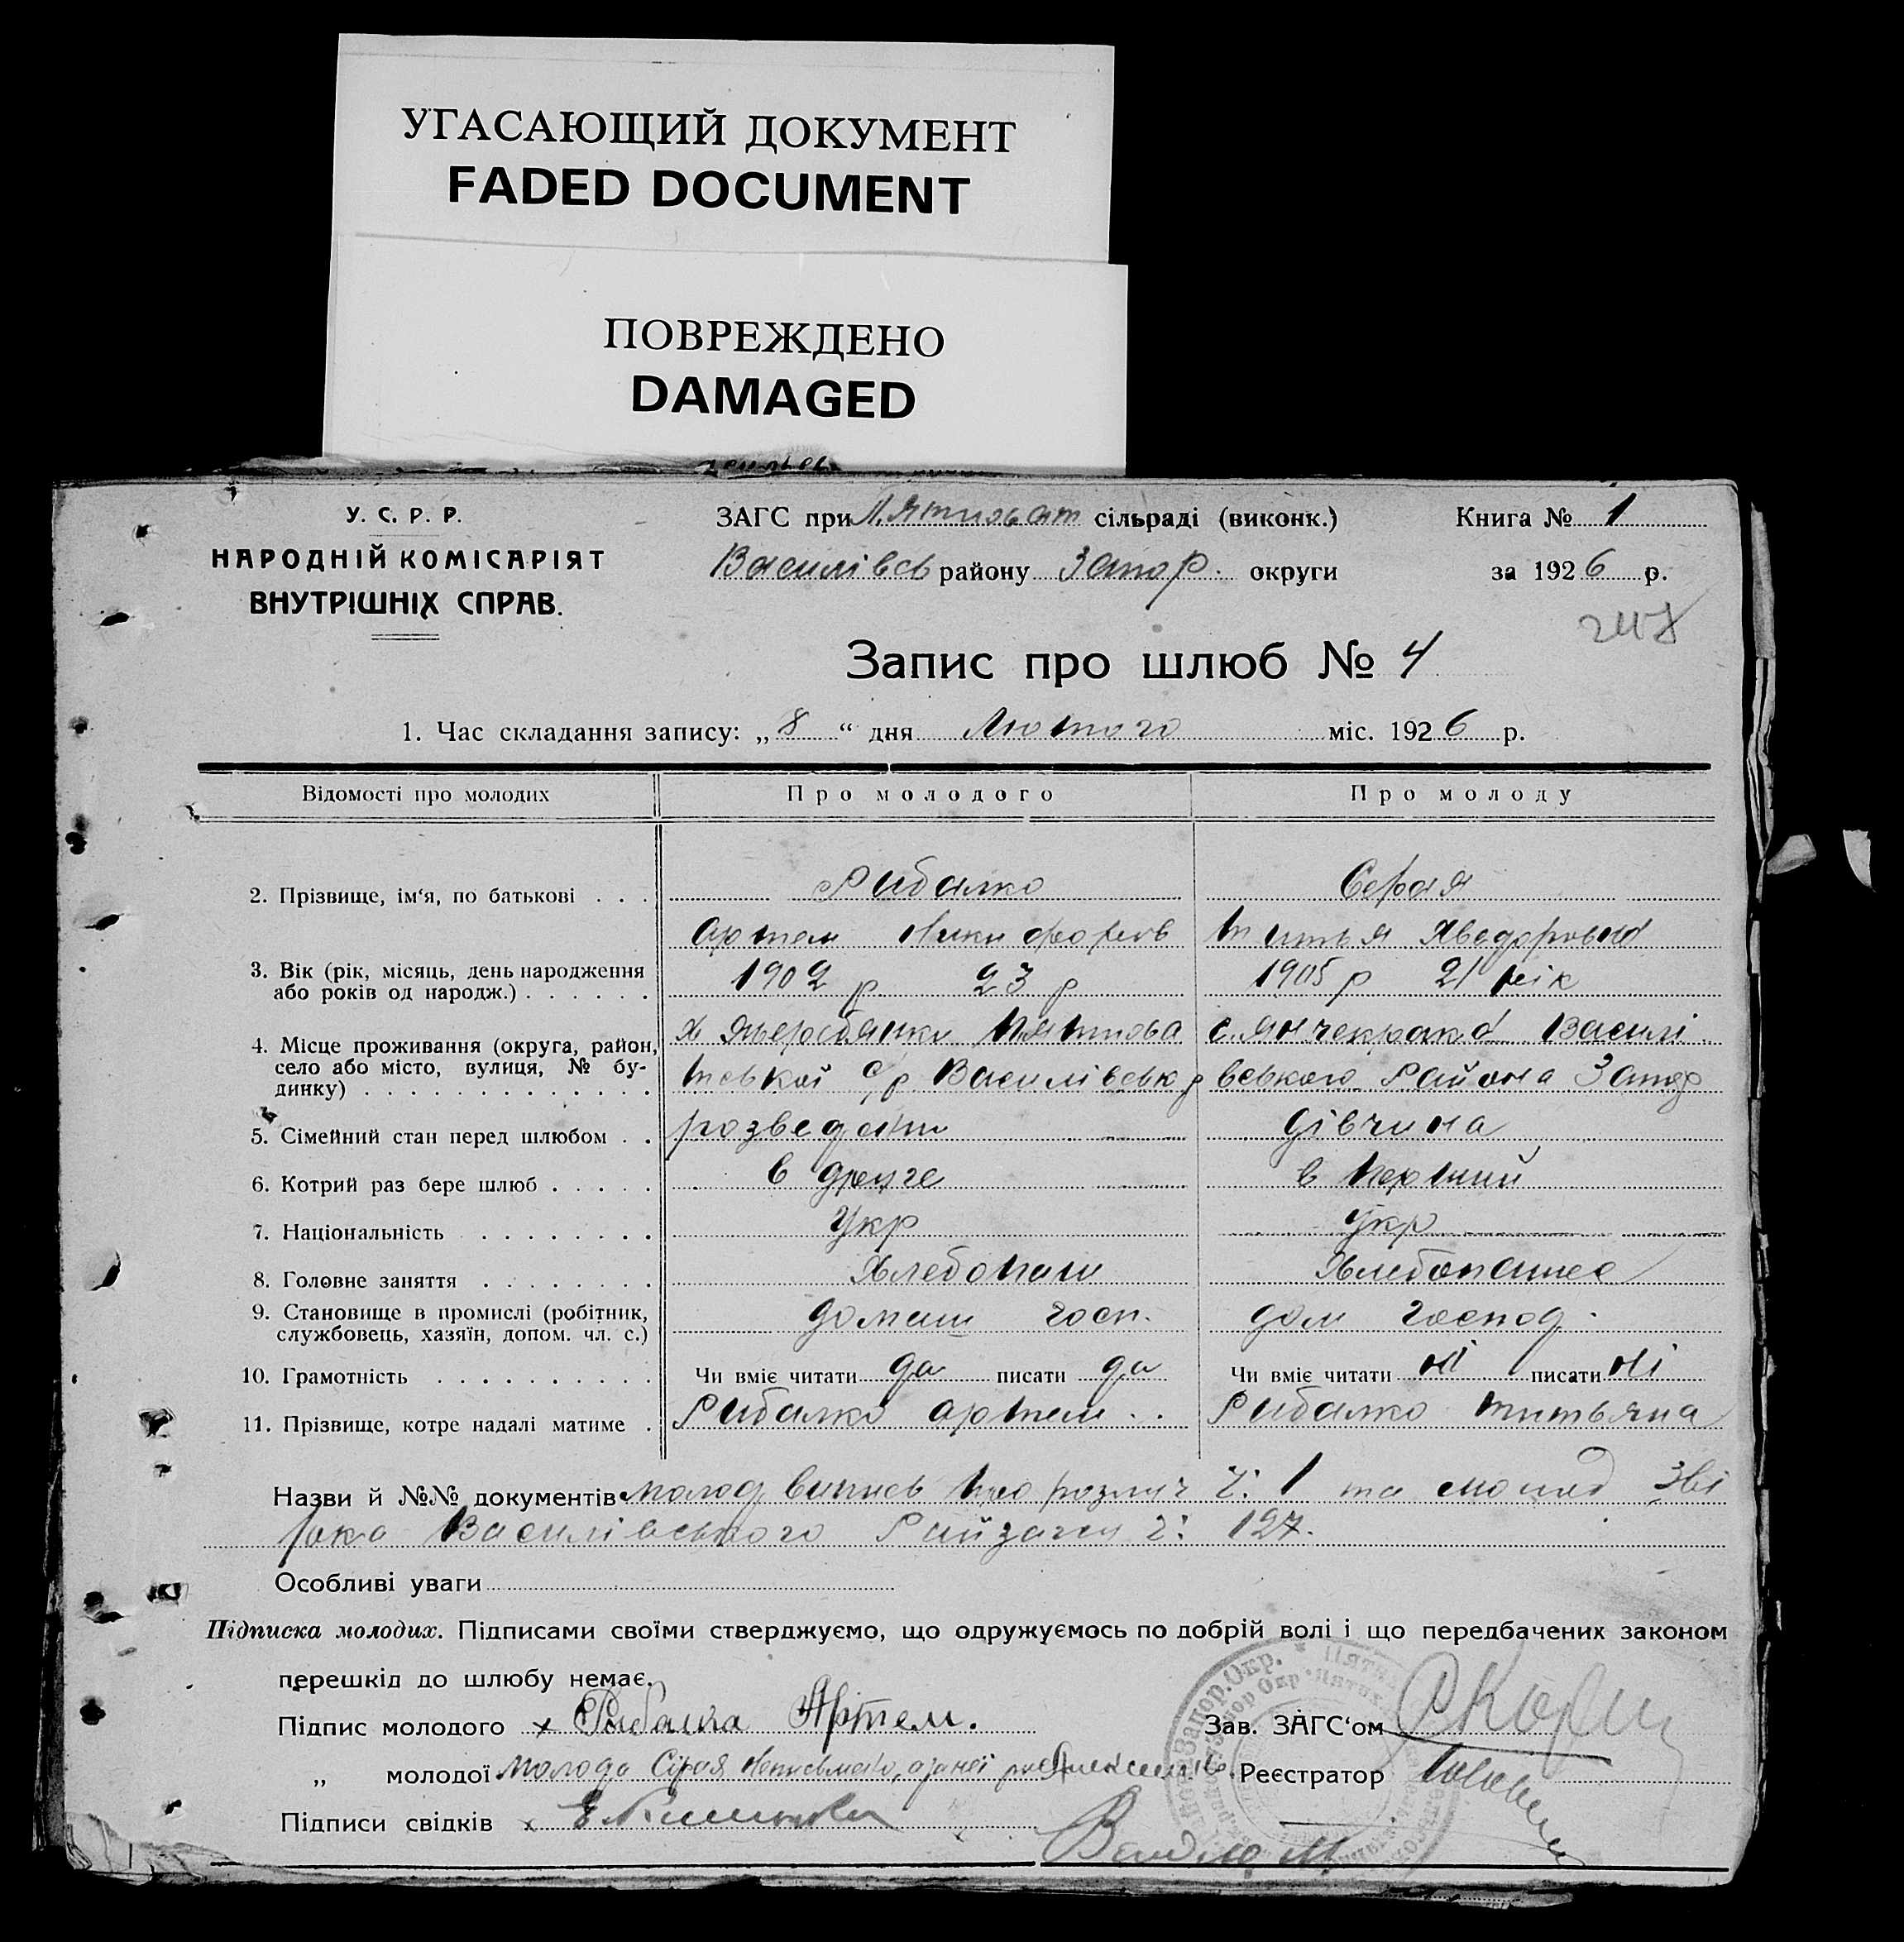 УГАСАЮЩИЙ ДОКУМЕНТ
FADED DOCUMENT
ПОВРЕЖДЕНО
DAMAGED
У. С. Р. Р.
НАРОДНІЙ КОМІСАРІЯТ
ВНУТРІШНІХ СПРАВ.
ЗАГС при Пятихат сільраді (виконк.)
Василівсь району Запор. округи
Книга № 1
за 1926 р.
Запис про шлюб № 4
1. Час складання запису: „8“ дня Лютого міс. 1926 р.
Відомості про молодих Про молодого Про молоду
2. Прізвище, ім'я, по батькові . . . Рибалко Серая
Артем Никифоров
3. Вік (рік, місяць, день народження або років од народж.) . . . . . . 1902 р 23 р 1905 р 21 рік
4. Місце проживання (округа, район, село або місто, вулиця, № будинку) . . . . . . . . . . . .
тської с/р Василівськ р
с. Янчекрака Василі
вського Района Запор
5. Сімейний стан перед шлюбом . . розведені дівчина
6. Котрий раз бере шлюб . . . . . в друге в перший
7. Національність . . . . . . . . Укр Укр
8. Головне заняття . . . . . . . . Хлебопаш Хлебопашес
9. Становище в промислі (робітник, службовець, хазяїн, допом. чл. с.) домаш госп. дом господ.
10. Грамотність . . . . . . . . . . Чи вміє читати да писати да Чи вміє читати ні писати ні
11. Прізвище, котре надалі матиме . Рибалко Артем . . Рибалко Титьяна
Назви й №№ документів молод випись про розлуч Ч: 1 та молод
Василівського Райзагса Ч: 127.
Особливі уваги
Підписка молодих. Підписами своїми стверджуємо, що одружуємось по добрій волі і що передбачених законом
перешкід до шлюбу немає.
Підпис молодого х Рибалка Артем.
Зав. ЗАГС'ом
„ молодої Молода Сірая неписьмена, а за неї
Реєстратор
Підписи свідків х